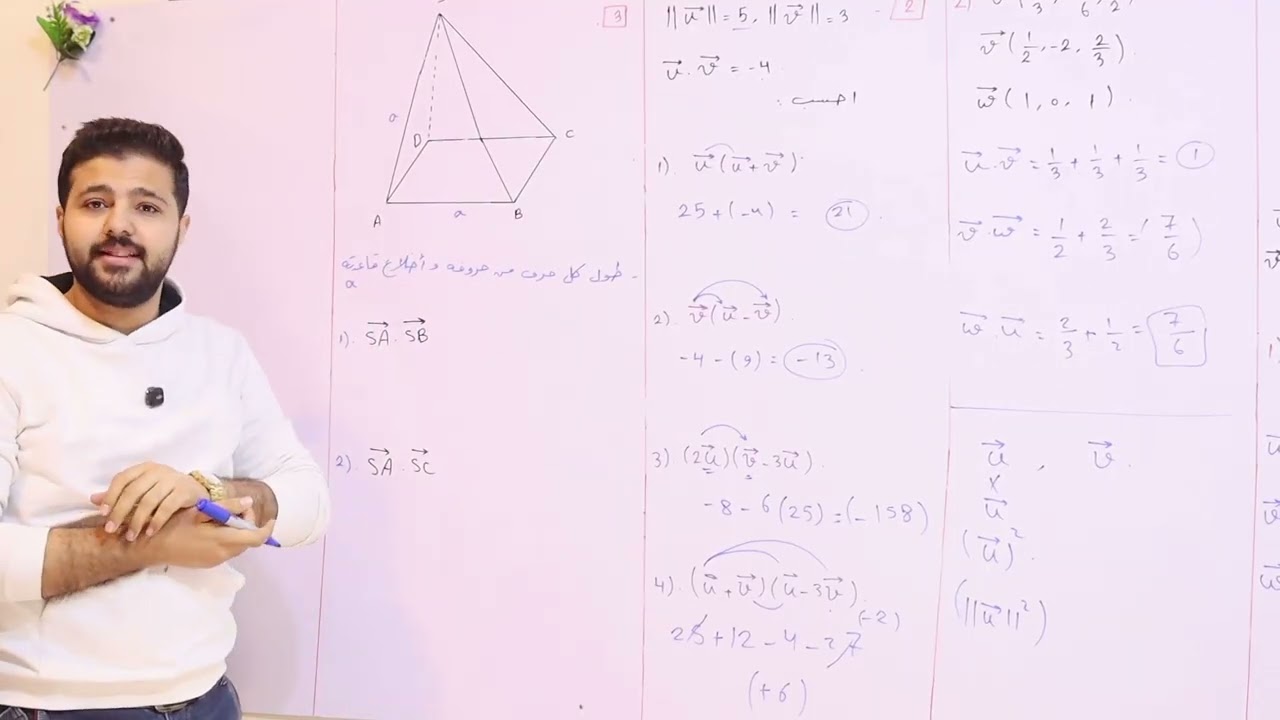 3
a
D
C
A
a
B
- طول كل حرف من حروفه و أضلاع قاعدته
a
1). SA⃗ . SB⃗
2). SA⃗ . SC⃗
2
||u⃗|| = 5 , ||v⃗|| = 3
u⃗ . v⃗ = -4
احسب :
1). u⃗ (u⃗ + v⃗)
25 + (-4) = 21
2). v⃗ (u⃗ - v⃗)
-4 - (9) = -13
3) (2u⃗)(v⃗ - 3u⃗)
-8 - 6(25) = (-158)
4). (u⃗ + v⃗)(u⃗ - 3v⃗)
(-2)
25 + 12 - 4 - 27
(+6)
v⃗ (1/2, -2, 2/3)
w⃗ (1, 0, 1)
u⃗ . v⃗ = 1/3 + 1/3 + 1/3 = 1
v⃗ . w⃗ = 1/2 + 2/3 = 7/6
w⃗ . u⃗ = 2/3 + 1/2 = 7/6
u⃗ , v⃗
x
u⃗
(u⃗)²
(||u⃗||²)